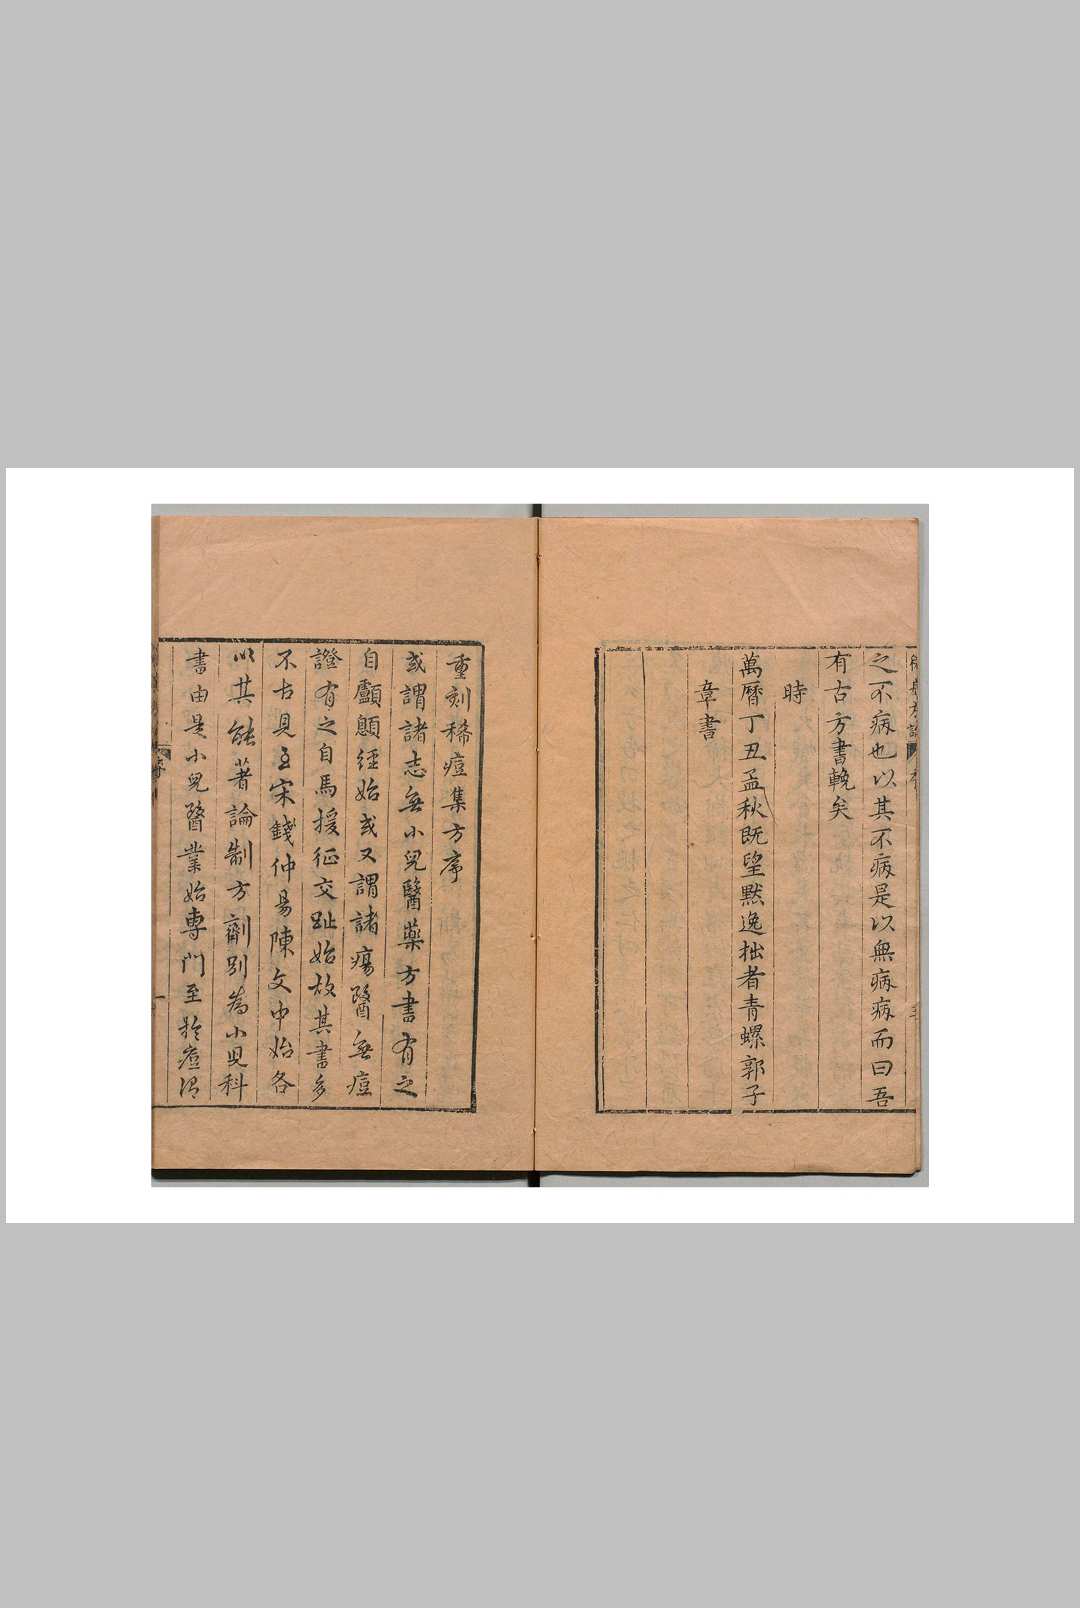 之不病也以其不病是以無病病而曰吾
有古方書輓矣
時
萬曆丁丑孟秋既望默逸拙者青螺郭子
章書
重刻稀痘集方序
或謂諸志無小兒醫藥方書有之
自顱顖經始或又謂諸瘍醫無痘
證有之自馬援征交趾始故其書多
不古見至宋錢仲易陳文中始各
以其能著論制方劑別為小兒科
書由是小兒醫業始專門至於痘
序
一